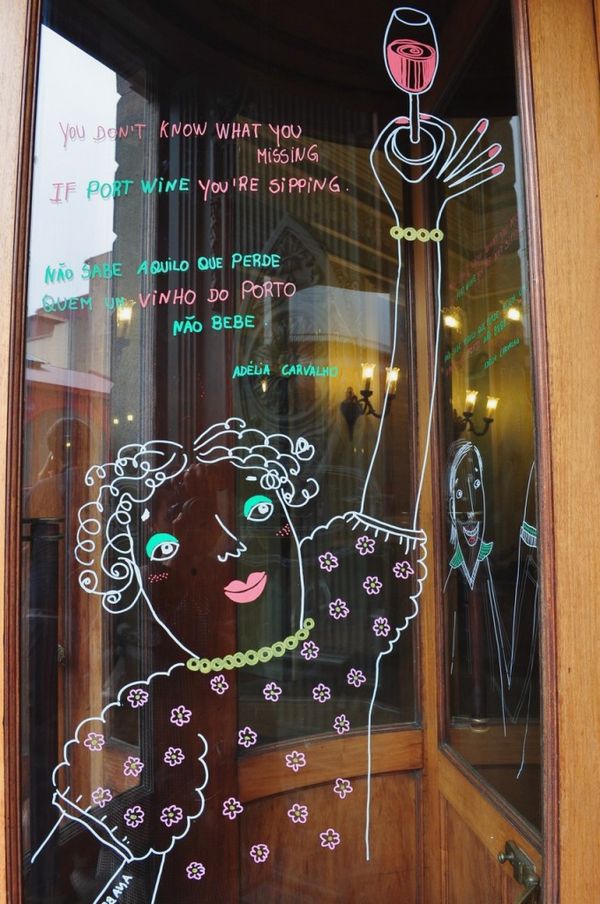 YOU DON'T KNOW WHAT YOU
MISSING
IF PORT WINE YOU'RE SIPPING.
NÃO SABE AQUILO QUE PERDE
QUEM UM VINHO DO PORTO
NÃO BEBE
ADÉLIA CARVALHO